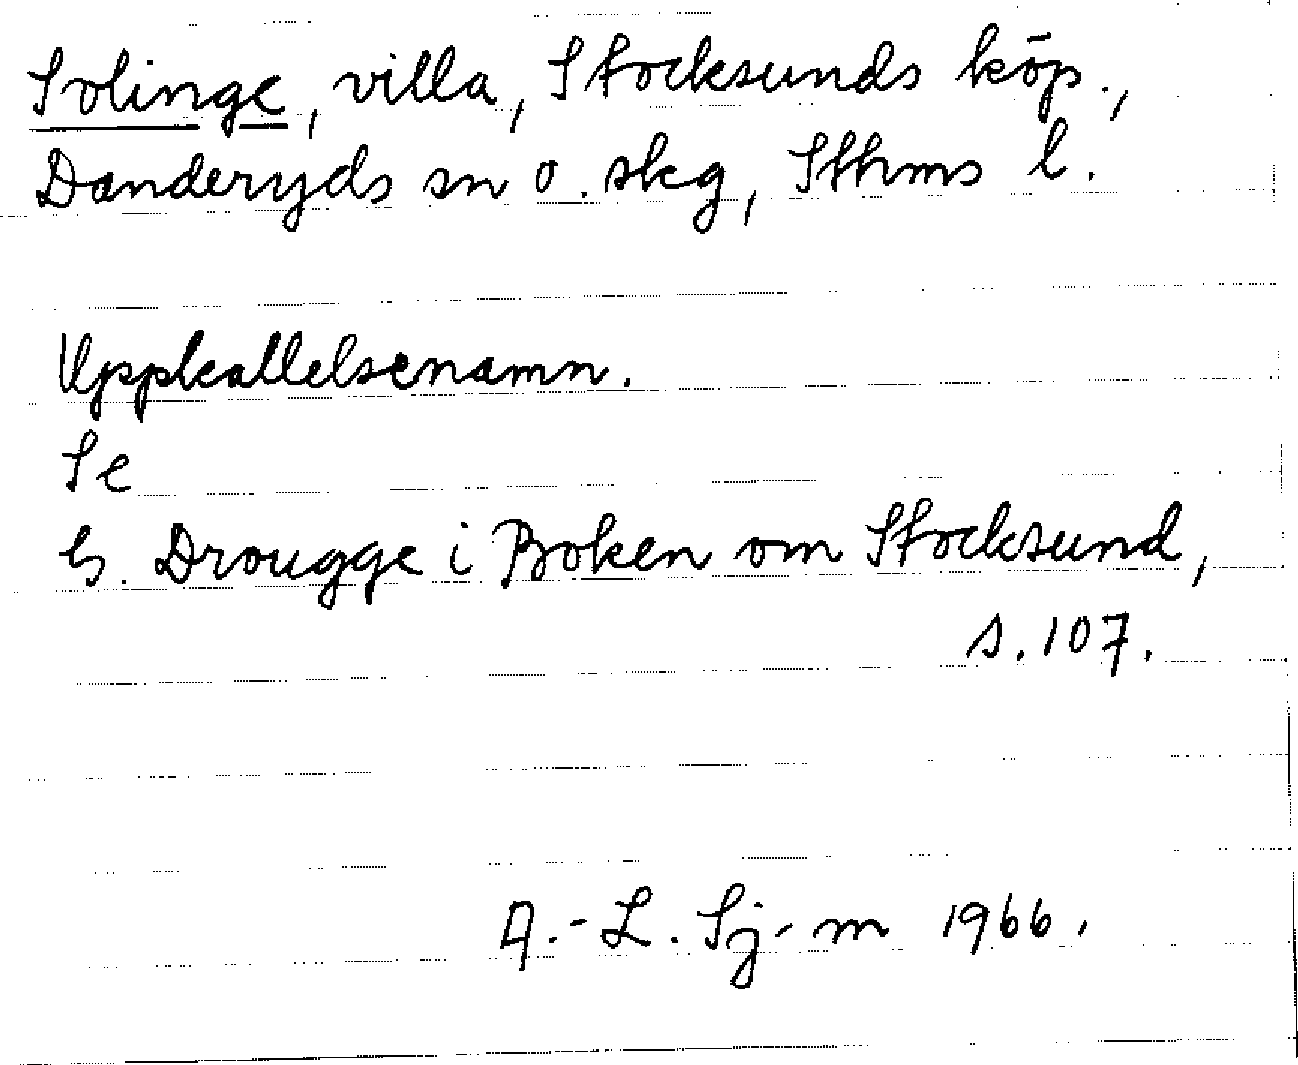 Solinge, villa, Stocksunds köp.,
Danderyds sn o. skg, Sthms l.
Uppkallelsenamn.
Se
G. Drougge i Boken om Stocksund,
s. 107.
A.-L. Sj-m 1966.